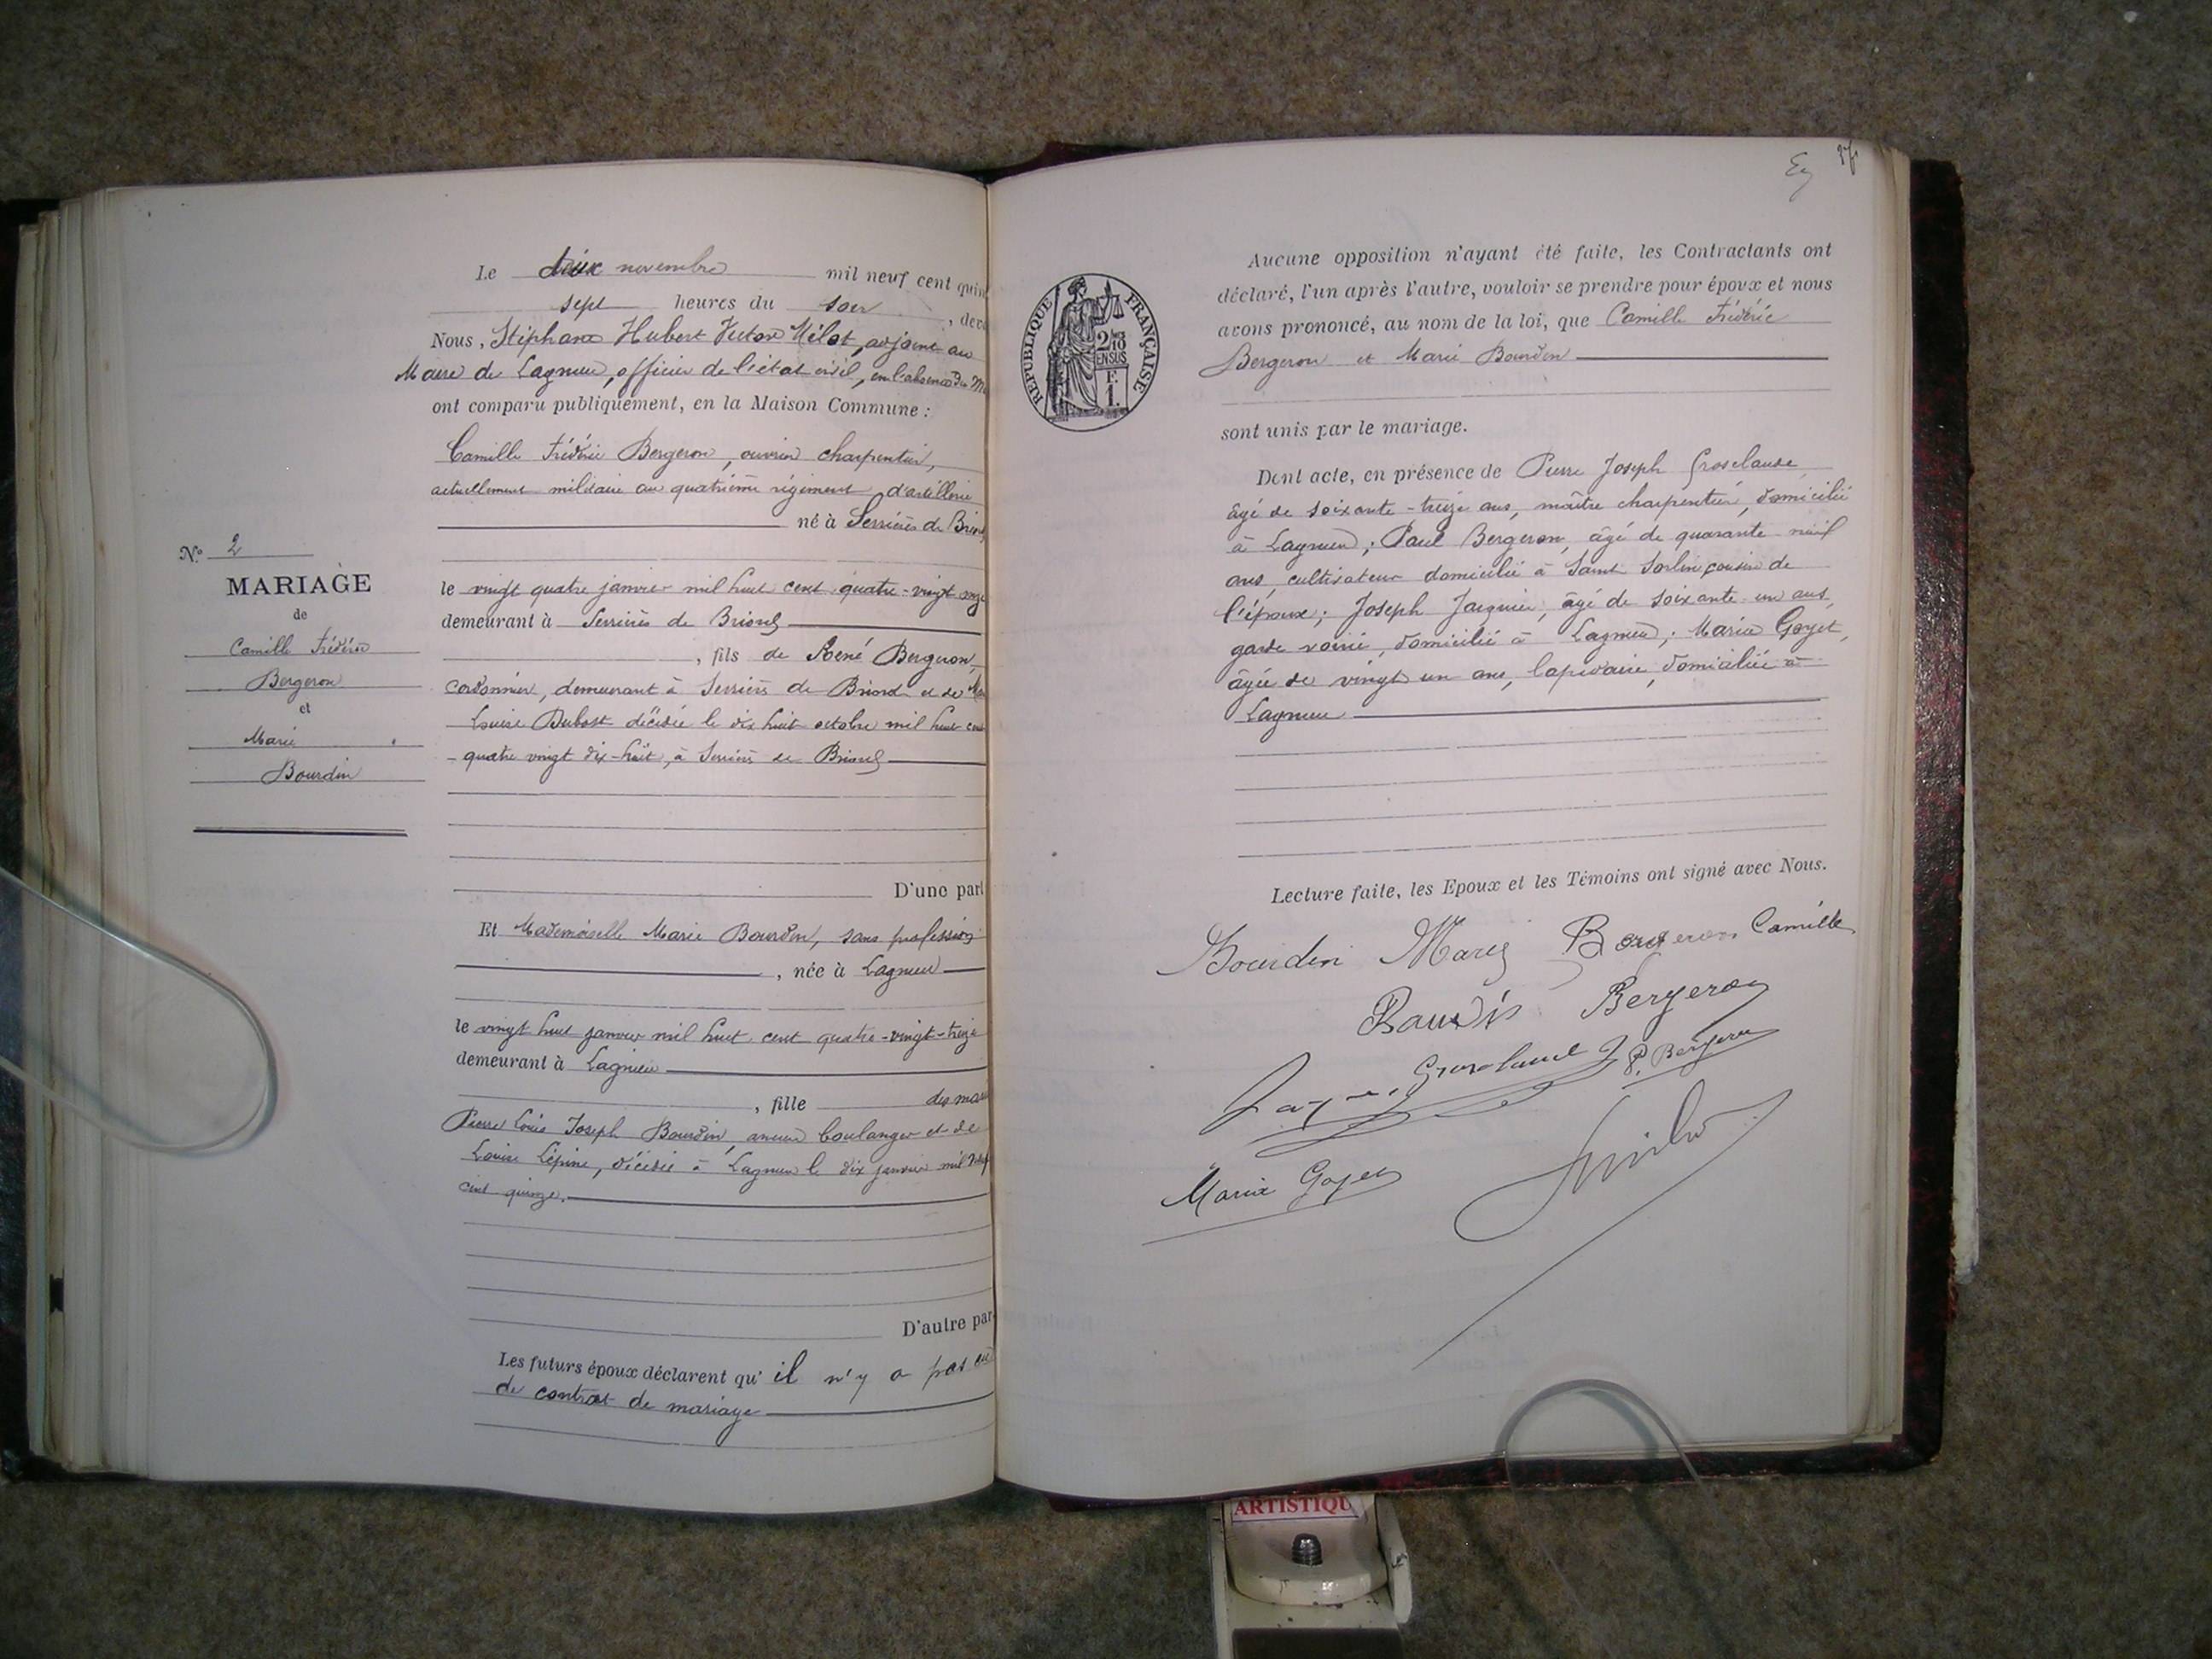 Le deux novembre mil neuf cent quin
sept heures du soir, dev
Nous, Stéphane Hubert Victor Milot, adjoint au
Maire de Lagnieu, officier de l'état civil, en l'absence du M
ont comparu publiquement, en la Maison Commune :
Camille Frédéric Bergeron, ouvrier charpentier,
actuellement militaire au quatrième régiment d'artillerie
né à Serrières de Briord
le vingt quatre janvier mil huit cent quatre-vingt onze
demeurant à Serrières de Briord
, fils de René Bergeron,
cordonnier, demeurant à Serrières de Briord et de
Louise Dubost décédée le dix huit octobre mil huit cent
quatre vingt dix-huit, à Serrières de Briord
D'une part
N° 2
MARIAGE
de
Camille Frédéric
Bergeron
et
Marie
Bourdin
Et Mademoiselle Marie Bourdin, sans profession
, née à Lagnieu
le vingt huit janvier mil huit cent quatre-vingt-treize
demeurant à Lagnieu
, fille des mar
Pierre Louis Joseph Bourdin, ancien boulanger et de
Louise Lépine, décédée à Lagnieu le dix janvier mil neuf
cent quinze.
D'autre par
Les futurs époux déclarent qu' il n'y a pas eu
de contrat de mariage
REPUBLIQUE FRANÇAISE
2/10
EN SUS
F.
1.
Aucune opposition n'ayant été faite, les Contractants ont
déclaré, l'un après l'autre, vouloir se prendre pour époux et nous
avons prononcé, au nom de la loi, que Camille Frédéric
Bergeron et Marie Bourdin
sont unis par le mariage.
Dont acte, en présence de Pierre Joseph Groselaude
âgé de soixante-treize ans, maître charpentier, domicilié
à Lagnieu; Paul Bergeron, âgé de quarante neuf
ans, cultivateur domicilié à Saint Sorlin, cousin de
l'époux; Joseph Jacquier, âgé de soixante un ans,
garde voirie, domicilié à Lagnieu; Maria Goyet,
âgée de vingt un ans, lapidaire, domiciliée à
Lagnieu
Lecture faite, les Epoux et les Témoins ont signé avec Nous.
Bourdin Marie Bergeron Camille
Bergeron
P. Bergeron
Maria Goyet
ARTISTIQU